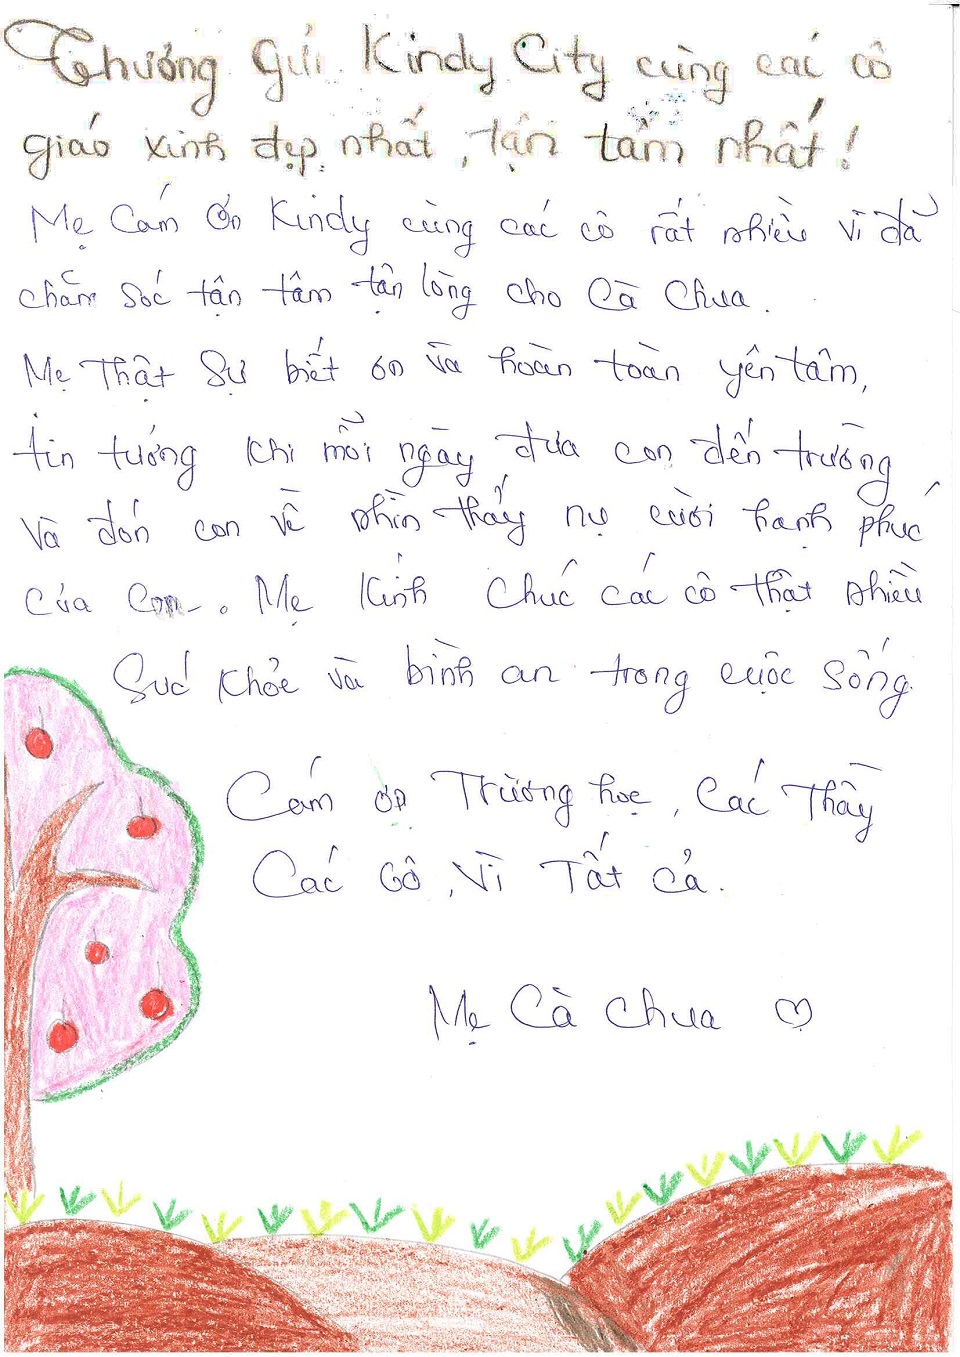 Thương gửi Kindy City cùng các cô
giáo xinh đẹp nhất, tận tâm nhất!
Mẹ Cám ơn Kindy cùng các cô rất nhiều vì đã
chăm sóc tận tâm tận lòng cho Cà Chua.
Mẹ Thật Sự biết ơn và hoàn toàn yên tâm,
tin tưởng khi mỗi ngày đưa con đến trường
và đón con về nhìn thấy nụ cười hạnh phúc
của con. Mẹ Kính chúc các cô thật nhiều
Sức khỏe và bình an trong cuộc sống.
Cám ơn Trường học, Các Thầy
Các Cô, Vì Tất cả.
Mẹ Cà Chua ♡